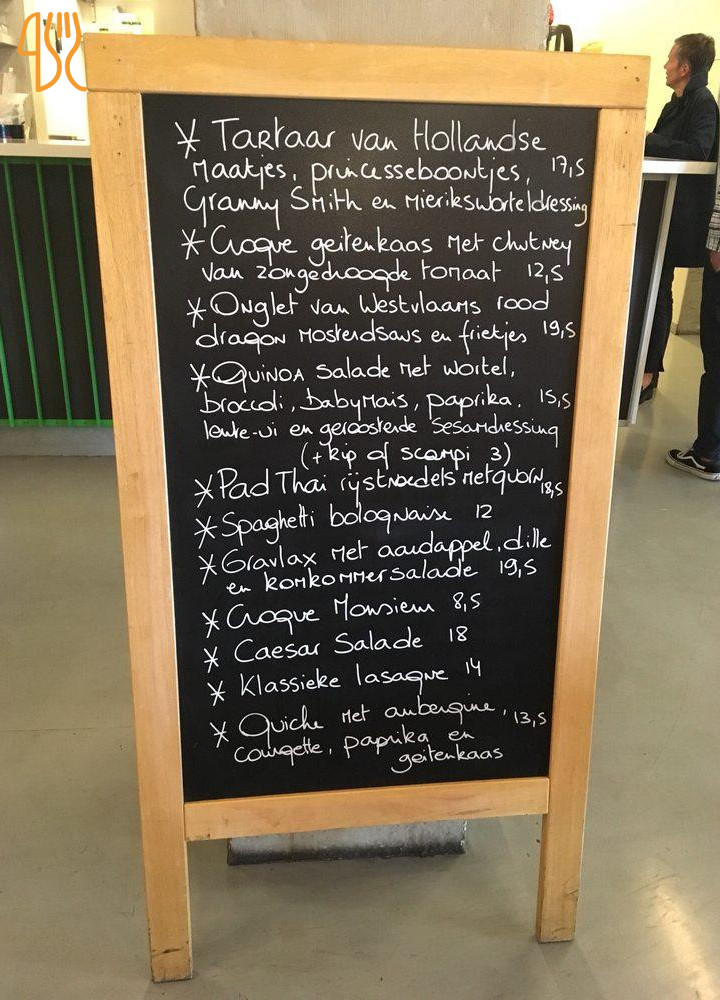 * Tartaar van Hollandse
maatjes, princesseboontjes, 17,5
Granny Smith en mieriksworteldressing
* Croque geitenkaas met chutney
van zongedroogde tomaat 12,5
* Onglet van Westvlaams rood
dragon mosterdsaus en frietjes 19,5
* Quinoa salade met wortel,
broccoli, babymais, paprika, 15,5
lente-ui en geroosterde sesamdressing
(+ kip of scampi 3)
* Pad Thai rijstnoedels met quorn 18,5
* Spaghetti bolognaise 12
* Gravlax met aardappel, dille
en komkommersalade 19,5
* Croque Monsieur 8,5
* Caesar Salade 18
* Klassieke lasagne 14
* Quiche met aubergine, 13,5
courgette, paprika en
geitenkaas